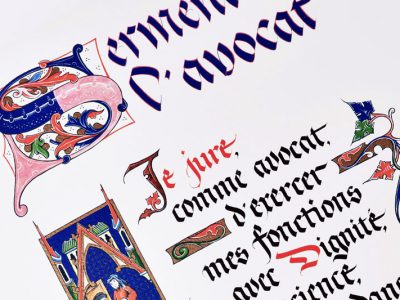 Serment
d'avocat
Je jure,
comme avocat,
d'exercer
mes fonctions
avec Dignité,